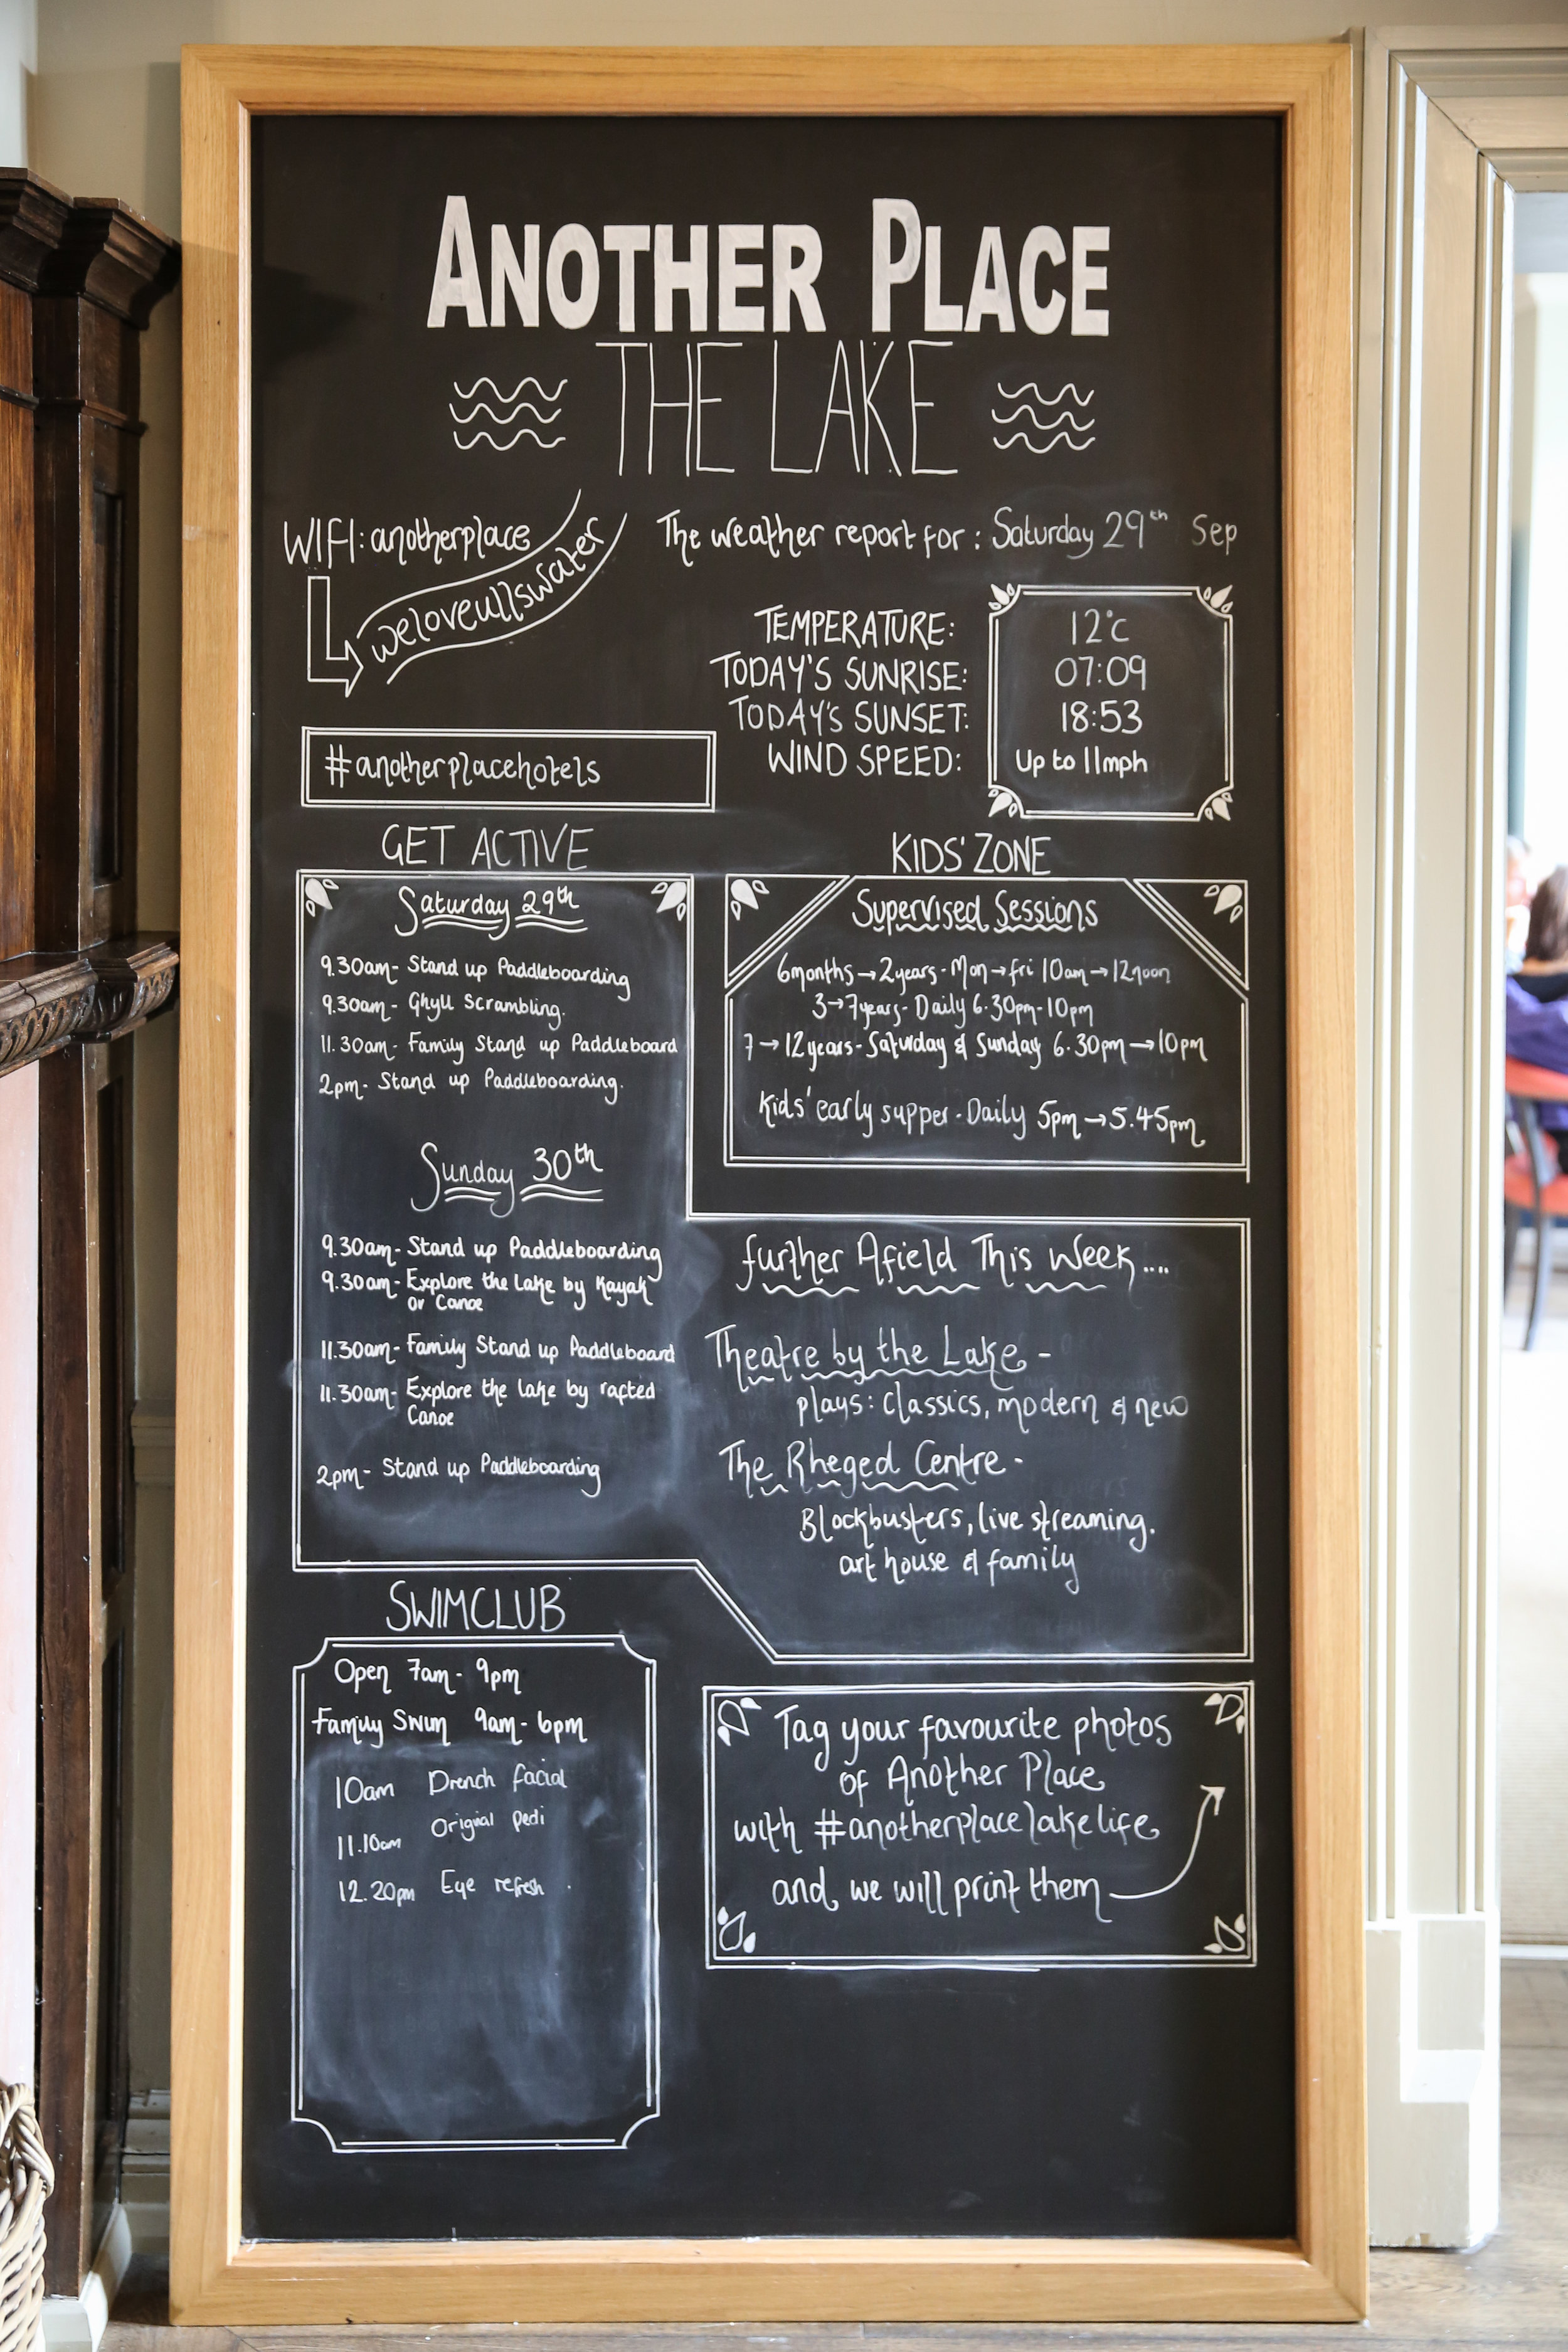 ANOTHER PLACE
THE LAKE
WIFI: anotherplace
weloveullswater
#anotherplacehotels
The weather report for: Saturday 29th Sep
TEMPERATURE: 12°C
TODAY'S SUNRISE: 07:09
TODAY'S SUNSET: 18:53
WIND SPEED: Up to 11mph
GET ACTIVE
Saturday 29th
9.30am- Stand up Paddleboarding
9.30am- Ghyll Scrambling.
11.30am- Family Stand up Paddleboard
2pm- Stand up Paddleboarding.
Sunday 30th
9.30am- Stand up Paddleboarding
9.30am- Explore the Lake by Kayak
or Canoe
11.30am- Family Stand up Paddleboard
11.30am- Explore the lake by rafted
Canoe
2pm- Stand up Paddleboarding
KIDS' ZONE
Supervised Sessions
6months→2years- Mon→fri 10am→12noon
3→7years- Daily 6.30pm-10pm
7→12years- Saturday & Sunday 6.30pm→10pm
Kids' early supper- Daily 5pm→5.45pm
further Afield This Week....
Theatre by the Lake -
plays: Classics, modern & new
The Rheged Centre -
Blockbusters, live streaming.
art house & family
SWIMCLUB
Open 7am- 9pm
Family Swim 9am- 6pm
10am Drench facial
11.10am Original pedi
12.20pm Eye refresh
Tag your favourite photos
of Another Place
with #anotherplacelakelife
and we will print them